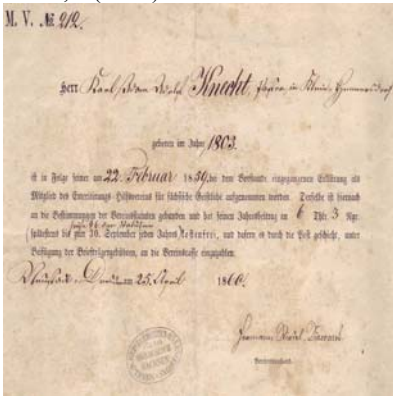 M. V. № 212.
Herr Karl Knecht, in Klein-
geboren im Jahre 1803.
ist in Folge seiner am 22. Februar 1859 bei dem Vorstande eingegangenen Erklärung als
Mitglied des Emeritirungs-Hilfsvereins für sächsische Geistliche aufgenommen worden. Derselbe ist hiernach
an die Bestimmungen der Vereinsstatuten gebunden und hat seinen Jahresbeitrag an 6 Thlr. 3 Ngr.
spätestens bis zum 30. September jeden Jahres kostenfrei, und dafern es durch die Post geschieht, unter
Beifügung der Briefträgergebühren, an die Vereinskasse einzuzahlen.
25. April 1860.
Hermann